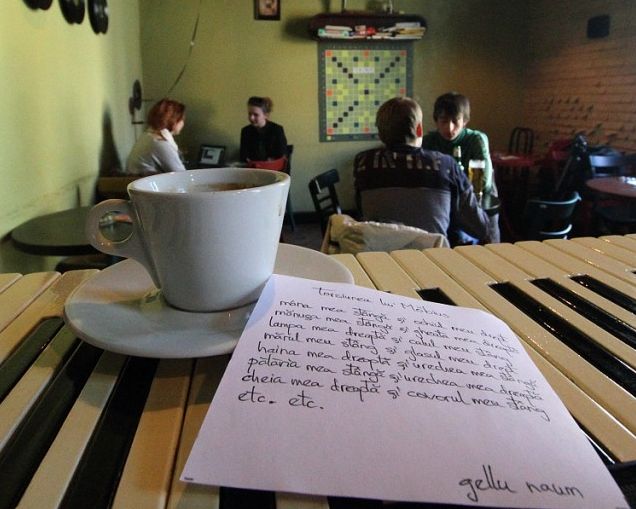 Torsiunea lui Möbius
mâna mea stângă și calul meu drept
mănușa mea stângă și gheata mea dreaptă
lampa mea dreaptă și calul meu stâng
mărul meu stâng și glasul meu drept
haina mea dreaptă și urechea mea stângă
pălăria mea stângă și urechea mea dreaptă
cheia mea dreaptă și covorul meu stâng
etc. etc.
gellu naum